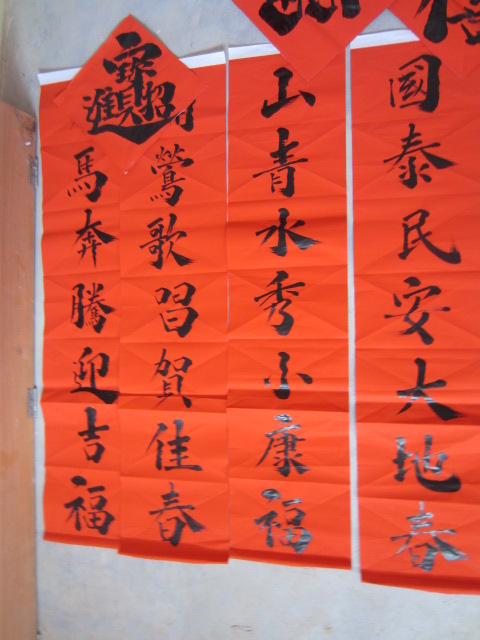 國泰民安大地春
山青水秀小康福
鶯歌昌賀佳春
馬奔騰迎吉福
招財進寶